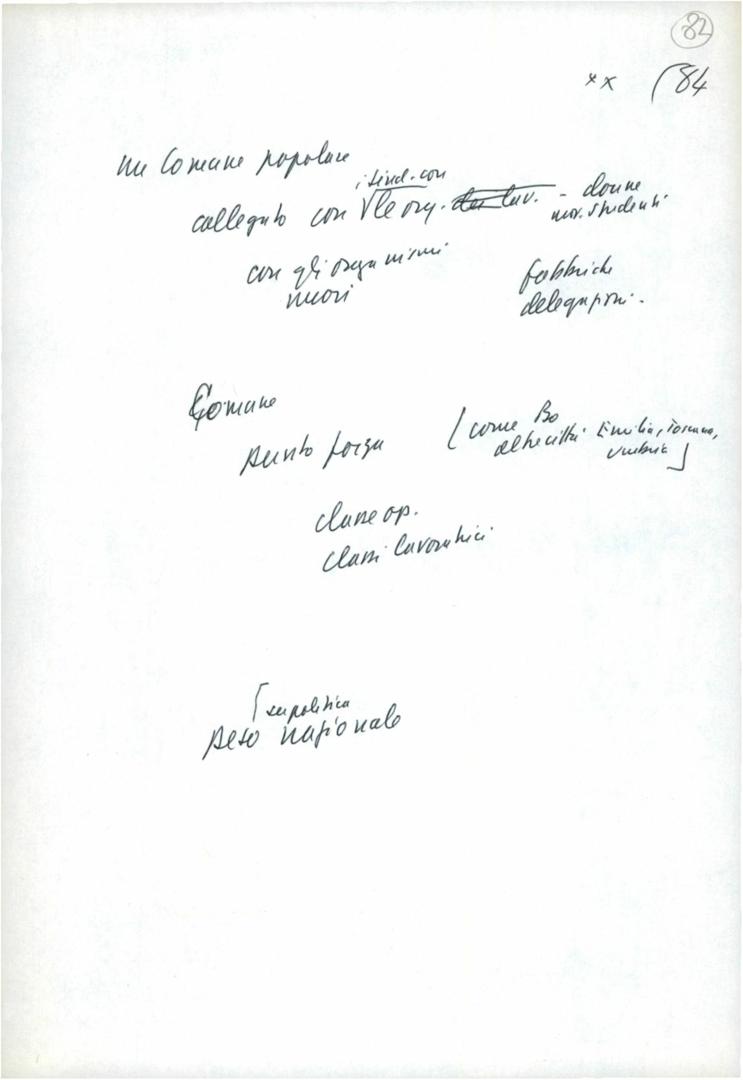 82
xx (84
un Comune popolare
i sind. con
collegato con le org. dei lav. - donne
mov. studenti
con gli organismi
nuovi
fabbriche
delegazioni.
Comune
punto forza
[come Bo
altre città Emilia, Toscana,
Umbria]
classe op.
classi lavoratrici
[su politica
peso nazionale